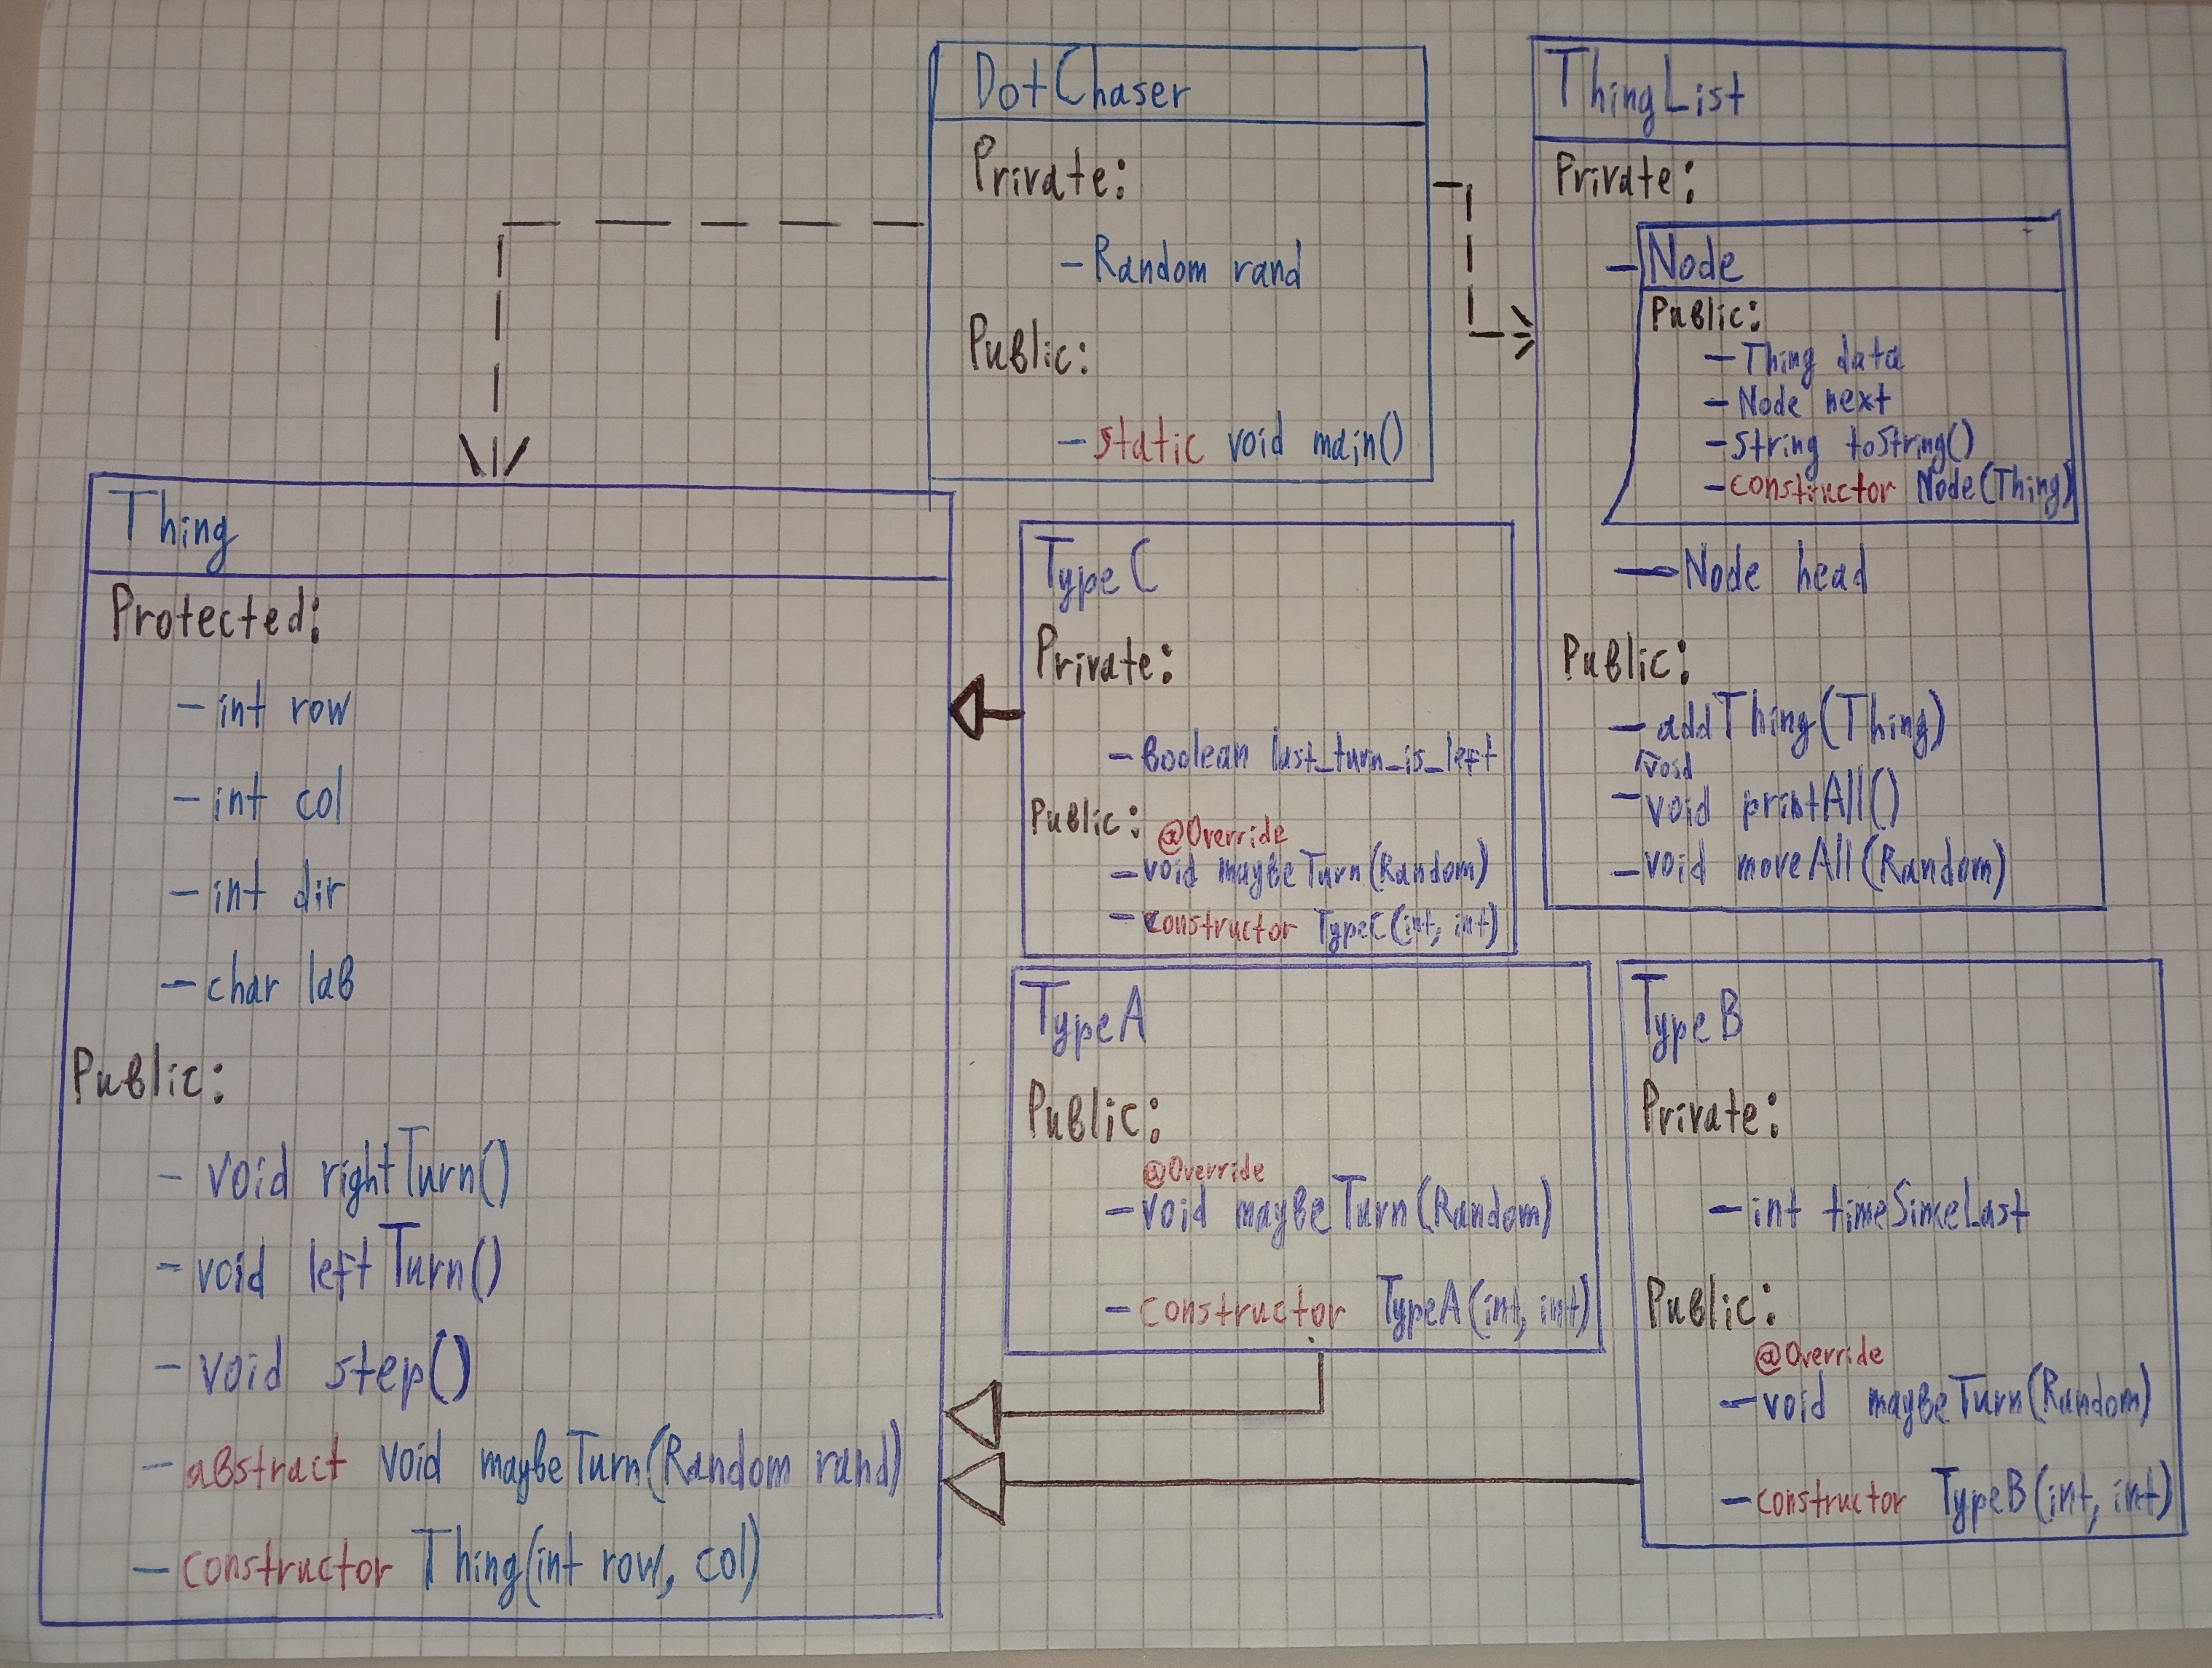 DotChaser
Private:
- Random rand
Public:
- static void main()
ThingList
Private:
- Node
Public:
- Thing data
- Node next
- String toString()
- constructor Node(Thing)
- Node head
Public:
- addThing(Thing)
void
- void printAll()
- void moveAll(Random)
Thing
Protected:
- int row
- int col
- int dir
- char lab
Public:
- void rightTurn()
- void leftTurn()
- void step()
- abstract void maybeTurn(Random rand)
- constructor Thing(int row, col)
TypeC
Private:
- Boolean last_turn_is_left
Public:
@Override
- void maybeTurn(Random)
- constructor TypeC(int, int)
TypeA
Public:
@Override
- void maybeTurn(Random)
- constructor TypeA(int, int)
TypeB
Private:
- int timeSinceLast
Public:
@Override
- void maybeTurn(Random)
- constructor TypeB(int, int)